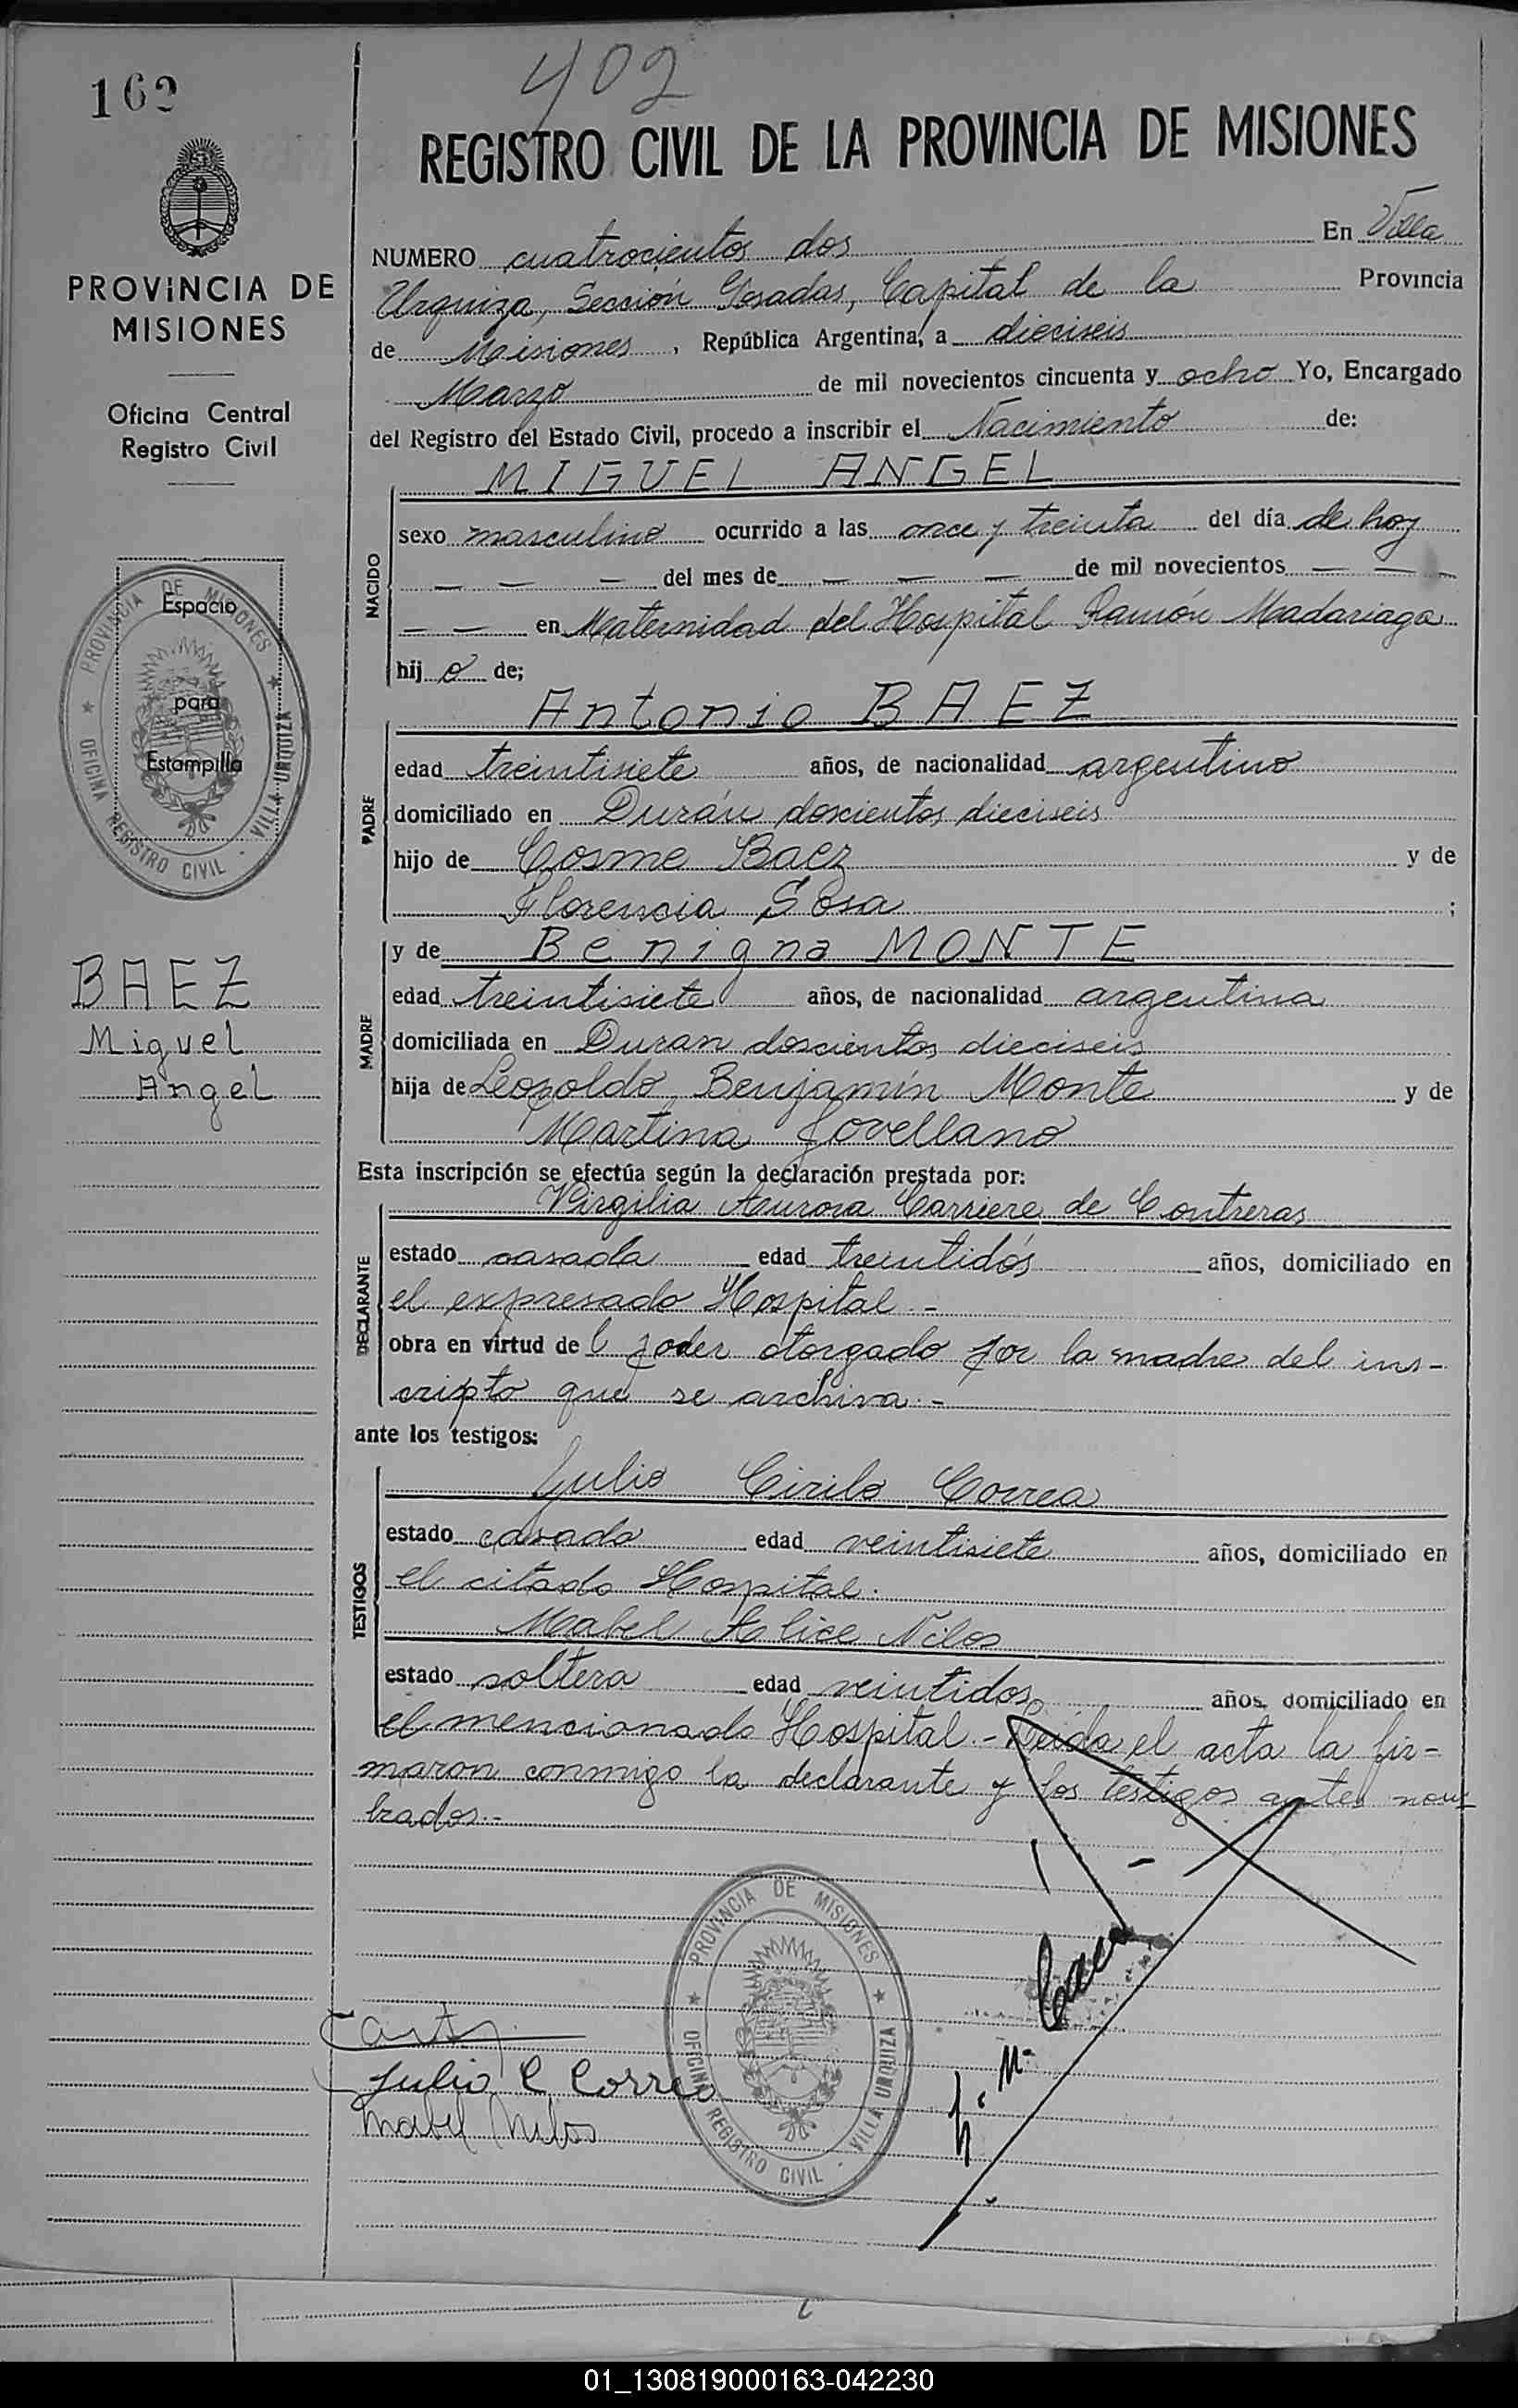 402
162
REGISTRO CIVIL DE LA PROVINCIA DE MISIONES
PROVINCIA DE
MISIONES
Oficina Central
Registro Civil
NUMERO cuatrocientos dos En Villa
Urquiza, Sección Posadas, Capital de la Provincia
de Misiones, República Argentina, a dieciseis
Marzo de mil novecientos cincuenta y ocho Yo, Encargado
del Registro del Estado Civil, procedo a inscribir el Nacimiento de:
NACIDO
MIGUEL ANGEL
sexo masculino ocurrido a las once y treinta del día de hoy
— — — del mes de — — — de mil novecientos — — —
— — en Maternidad del Hospital Ramón Madariaga
hij o de;
PADRE
Antonio BAEZ
edad treintisiete años, de nacionalidad argentino
domiciliado en Durán doscientos dieciseis
hijo de Cosme Baez y de
Florencia Sosa ;
MADRE
y de Benigna MONTE
edad treintisiete años, de nacionalidad argentina
domiciliada en Duran doscientos dieciseis
hija de Leopoldo Benjamín Monte y de
Martina Jovellano
Esta inscripción se efectúa según la declaración prestada por:
DECLARANTE
Virgilia Aurora Carriere de Contreras
estado casada edad treintidós años, domiciliado en
el expresado Hospital -
obra en virtud de l poder otorgado por la madre del ins-
cripto que se archiva.-
ante los testigos:
TESTIGOS
Julio Cirilo Correa
estado casado edad veintisiete años, domiciliado en
el citado Hospital.
Mabel Alice Nilos
estado soltera edad veintidos años, domiciliado en
el mencionado Hospital.- Leída el acta la fir-
maron conmigo la declarante y los testigos antes nom-
brados.-
Espacio
para
Estampilla
PROVINCIA DE MISIONES
OFICINA REGISTRO CIVIL - VILLA URQUIZA
BAEZ
Miguel
Angel
PROVINCIA DE MISIONES
OFICINA REGISTRO CIVIL - VILLA URQUIZA
Julio C Correa
Mabel Nilos
01_130819000163-042230